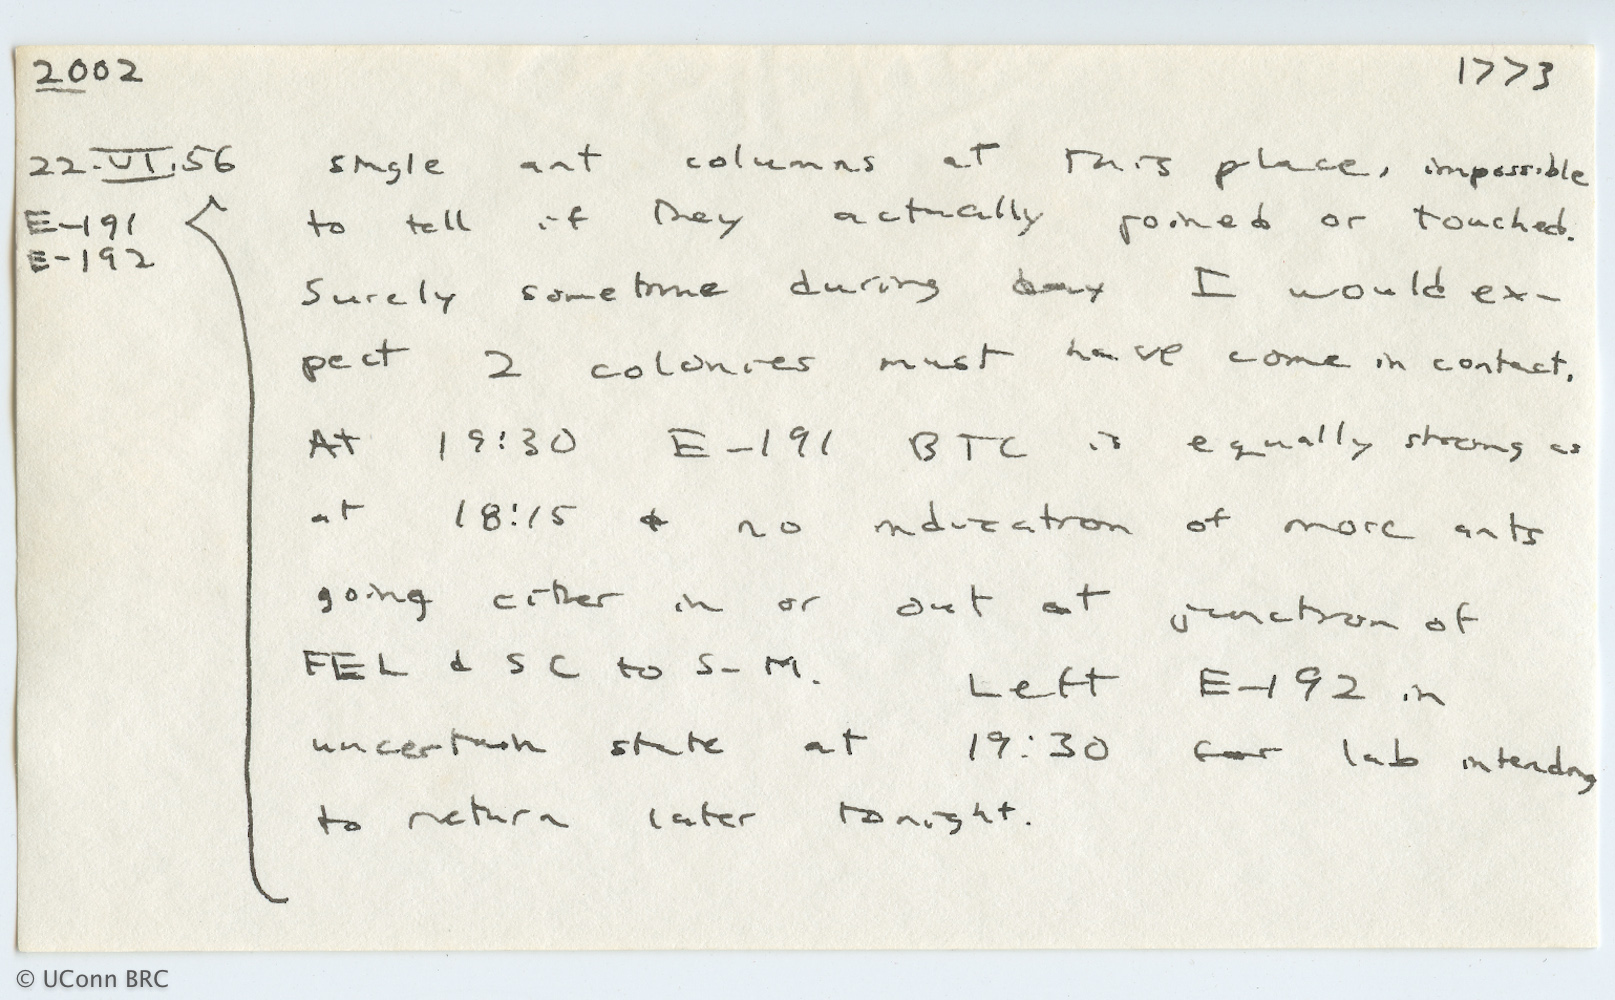 2002 1773
22.VI.56 single ant columns at this place, impossible
E-191 to tell if they actually joined or touched.
E-192
Surely sometime during day I would ex-
pect 2 colonies must have come in contact.
At 19:30 E-191 BTC is equally strong as
at 18:15 & no indication of more ants
going either in or out at junction of
FEL & SC to S-M. Left E-192 in
uncertain state at 19:30 for lab intending
to return later tonight.
© UConn BRC